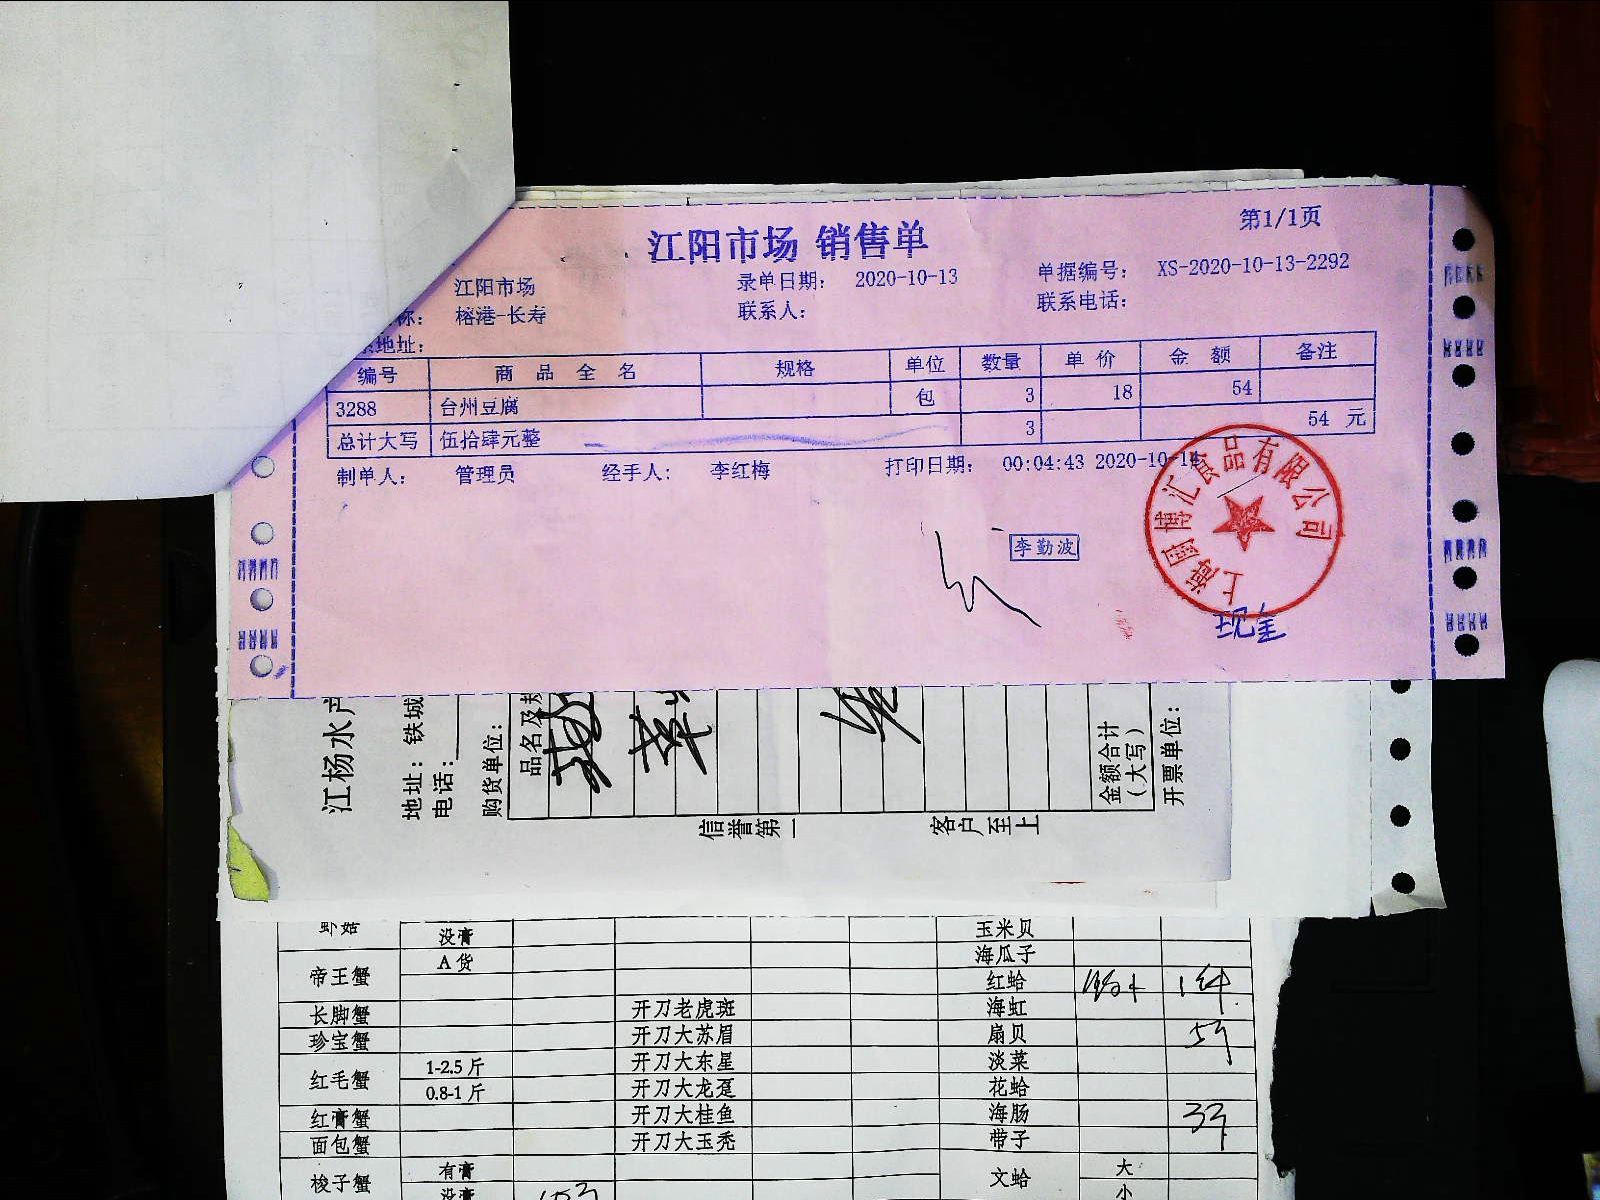 江阳市场 销售单
第1/1页
江阳市场 录单日期： 2020-10-13 单据编号： XS-2020-10-13-2292
称： 榕港-长寿 联系人： 联系电话：
地址：
编号 商品全名 规格 单位 数量 单价 金额 备注
3288 台州豆腐 包 3 18 54
总计大写 伍拾肆元整 3 54 元
制单人： 管理员 经手人： 李红梅 打印日期： 00:04:43 2020-10-14
李勤波
上海国博汇食品有限公司
现金
江杨水产
地址：铁城
电话：
购货单位：
品名及规
金额合计
（大写）
开票单位：
信誉第一 客户至上
虾菇 没膏 玉米贝
帝王蟹 A货 海瓜子
红蛤 1件
长脚蟹 开刀老虎斑 海虹
珍宝蟹 开刀大苏眉 扇贝 5斤
红毛蟹 1-2.5斤 开刀大东星 淡菜
0.8-1斤 开刀大龙趸 花蛤
红膏蟹 开刀大桂鱼 海肠 3斤
面包蟹 开刀大玉秃 带子
梭子蟹 有膏 文蛤 大
没膏 小